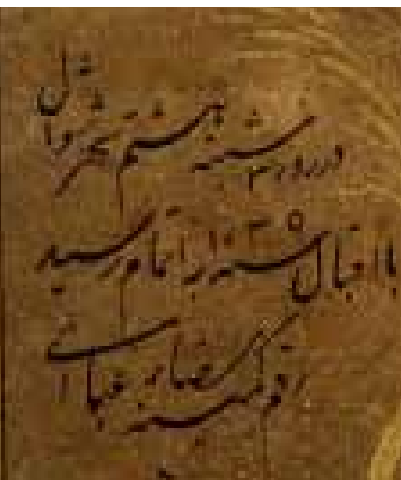 در روز ۳ شنبه هشتم شهر شوال
با اقبال سنه ۱۰۳۵ باتمام رسید
رقم کمینه رضا عباسی